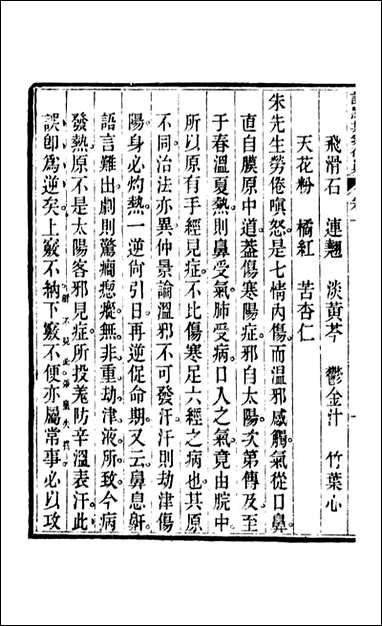 飛滑石　連翹　淡黃芩　鬱金汁　竹葉心
天花粉　橘紅　苦杏仁
朱先生勞倦嗔怒是七情內傷而溫邪感觸氣從口鼻
直自膜原中道蓋傷寒陽症邪自太陽次第傳及至
于春溫夏熱則鼻受氣肺受病口入之氣竟由脘中
所以原有手經見症不比傷寒足六經之病也其原
不同治法亦異仲景論溫邪不可發汗汗則劫津傷
陽身必灼熱一逆尚引日再逆促命期又云鼻息鼾
語言難出劇則驚癎瘛瘲無非重劫津液所致今病
發熱原不是太陽客邪見症所投羗防辛溫表汗此
誤卽爲逆矣上竅不納下竅不便亦屬常事必以攻